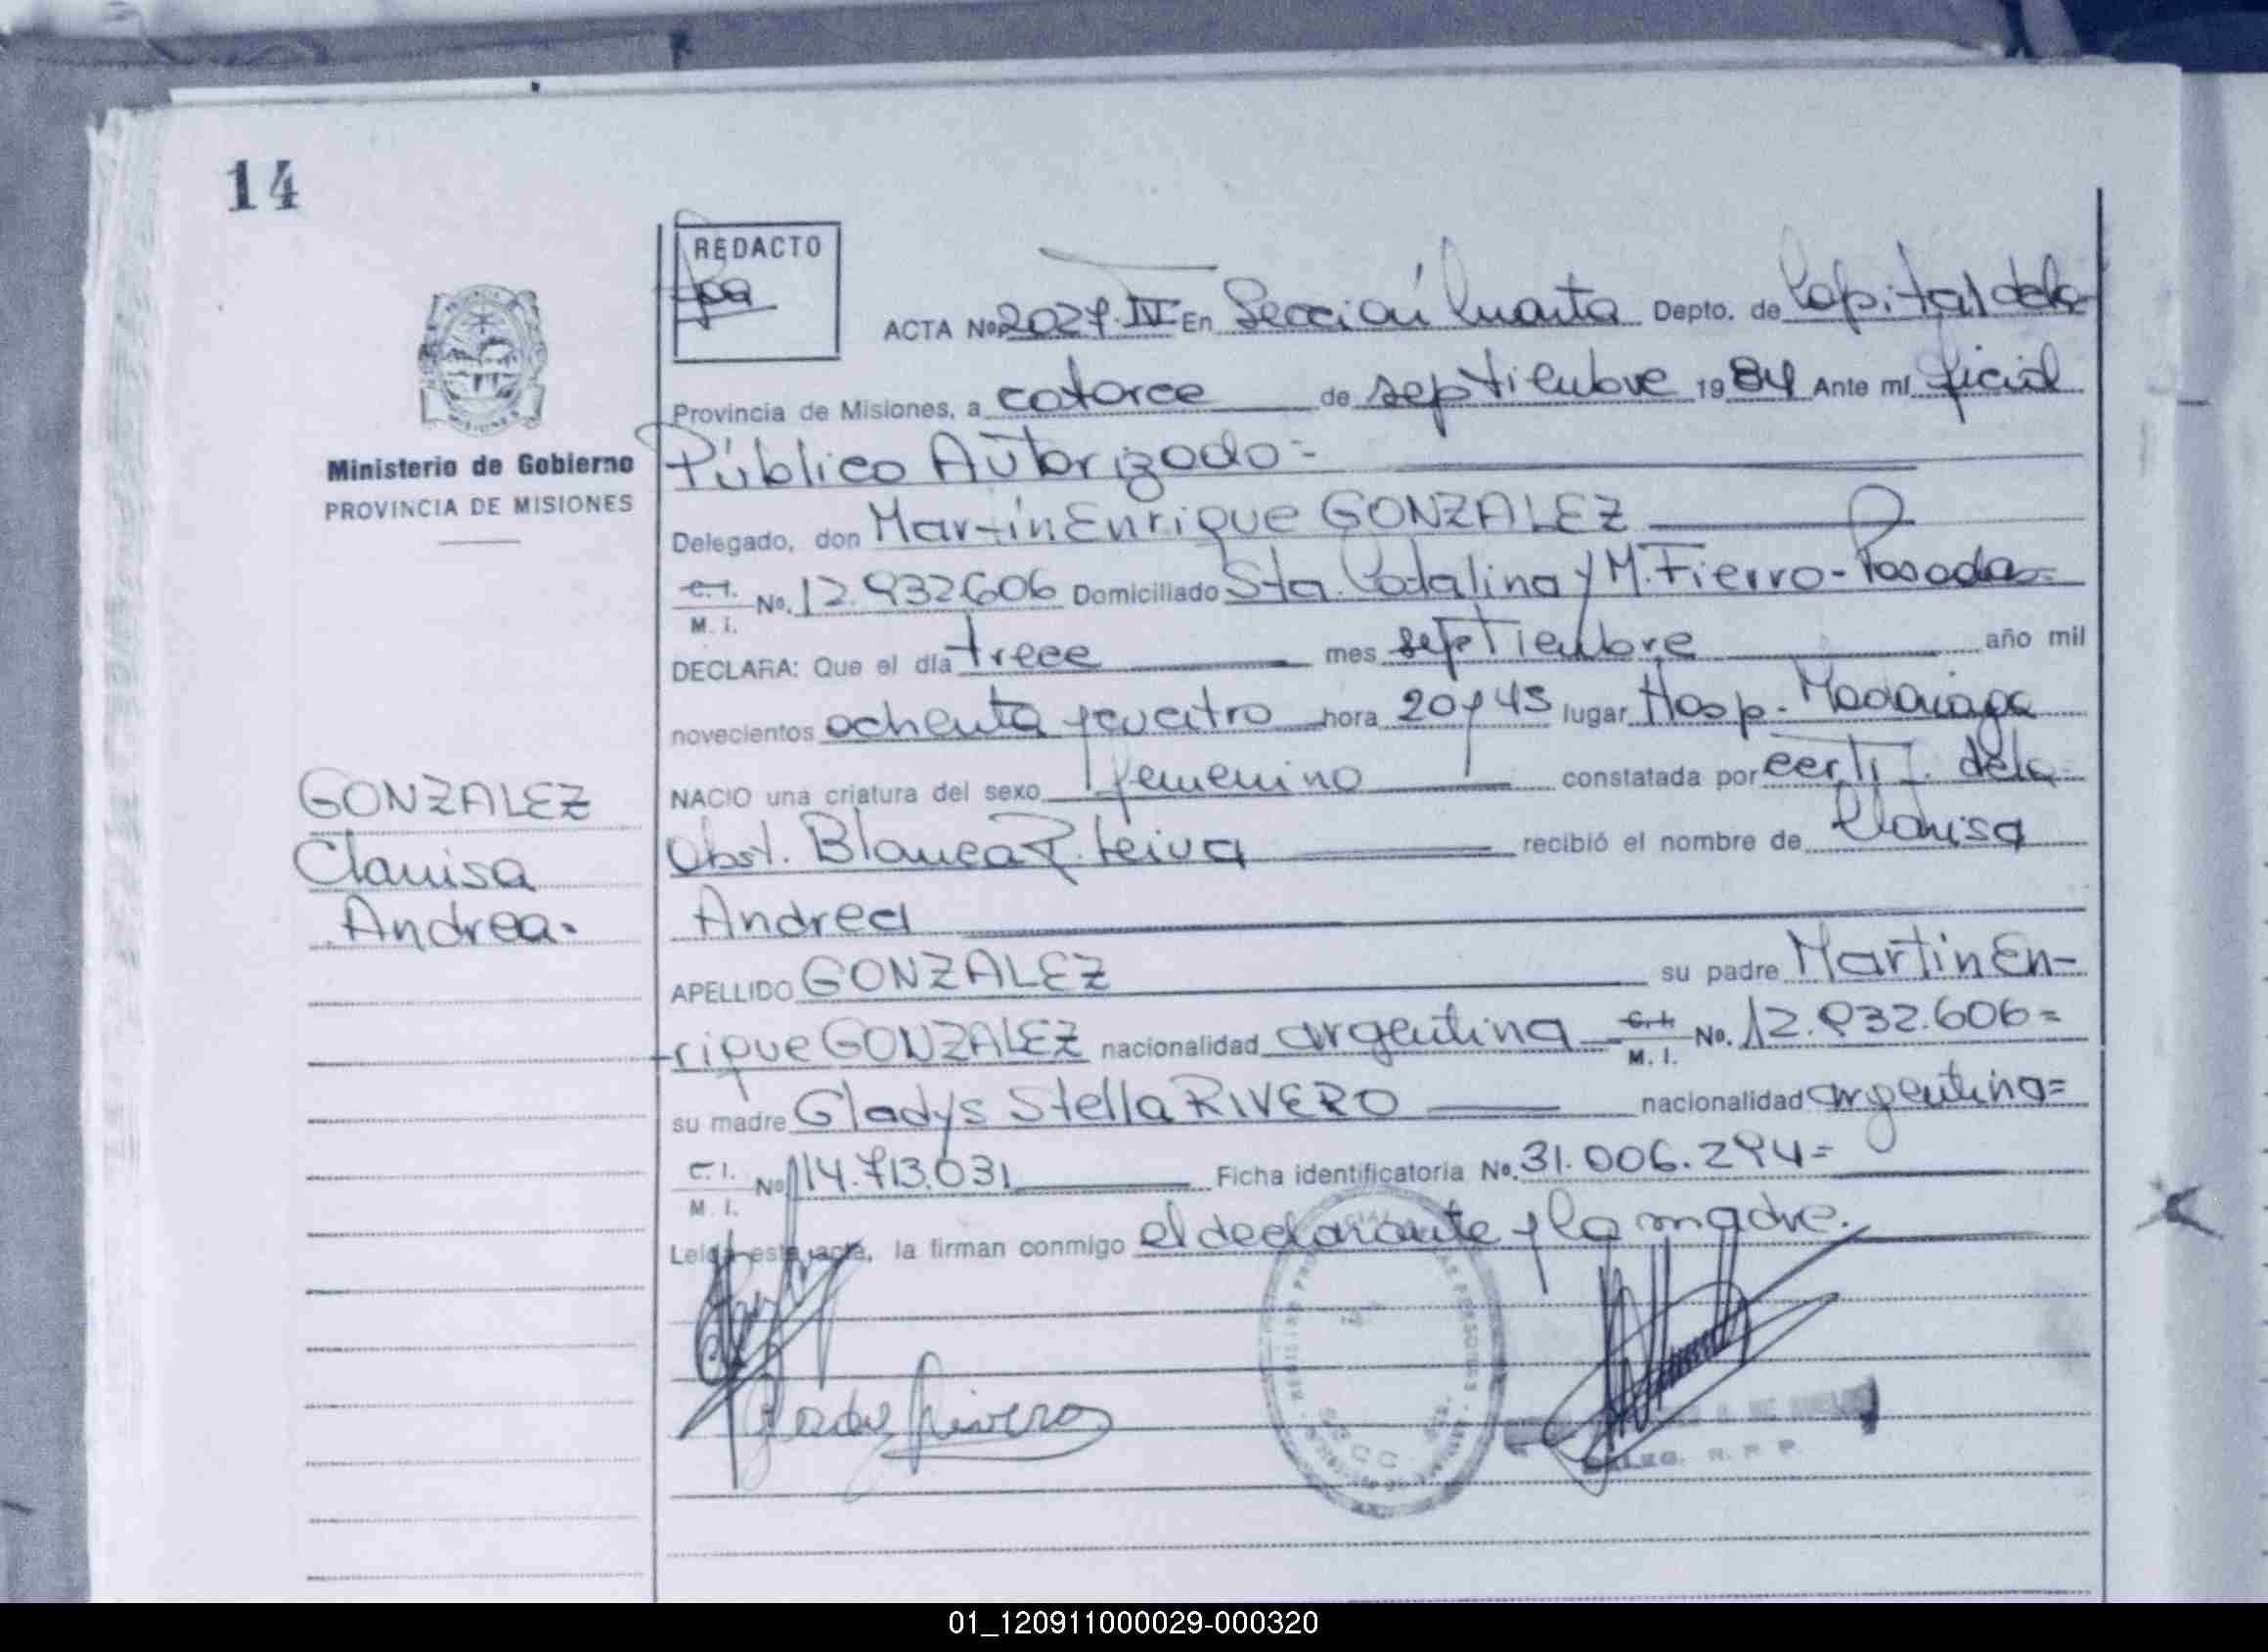 14
REDACTO
ACTA No. 2027-IV En Sección Cuarta Depto. de Capital de la
Provincia de Misiones, a catorce de septiembre 1984 Ante mí Oficial
Ministerio de Gobierno
PROVINCIA DE MISIONES
Público Autorizado=
Delegado, don Martín Enrique GONZALEZ
C.I. M. I. No. 12.932.606 Domiciliado Sta. Catalina y M. Fierro - Posadas=
DECLARA: Que el día trece mes septiembre año mil
novecientos ochenta y cuatro hora 20 y 45 lugar Hosp. Madariaga
NACIO una criatura del sexo femenino constatada por certif. de la
Obst. Blanca R. Leiva recibió el nombre de Clarisa
Andrea
GONZALEZ
Clarisa
Andrea.
APELLIDO GONZALEZ su padre Martin En-
rique GONZALEZ nacionalidad argentina C.I. M. I. No. 12.932.606=
su madre Gladys Stella RIVERO nacionalidad argentina=
C.I. M. I. No. 14.713.031 Ficha identificatoria No. 31.006.294=
Leída esta acta, la firman conmigo el declarante y la madre.
Gladys Rivero
DELEG. R. P. P.
01_120911000029-000320